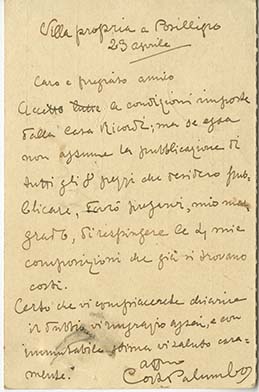 Villa propria a Posillipo
23 aprile
Caro e pregiato amico
Accetto tutte le condizioni imposte
dalla Casa Ricordi, ma se essa
non assume la pubblicazione di
tutti gli 8 pezzi che desidero pub-
blicare, sarò pregarvi, mio mal
grado, di respingere le 4 mie
composizioni che già si trovano
costì.
Certo che vi compiacerete chiarire
il dubbio vi ringrazio assai, e con
immutabile stima vi saluto cara-
mente.
affmo
Costi Palumbo